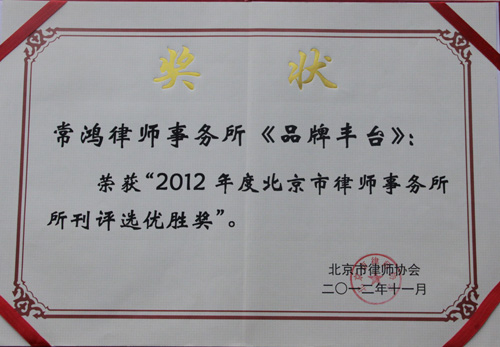 奖状
常鸿律师事务所《品牌丰台》:
荣获“2012年度北京市律师事务所
所刊评选优胜奖”。
北京市律师协会
二〇一二年十一月